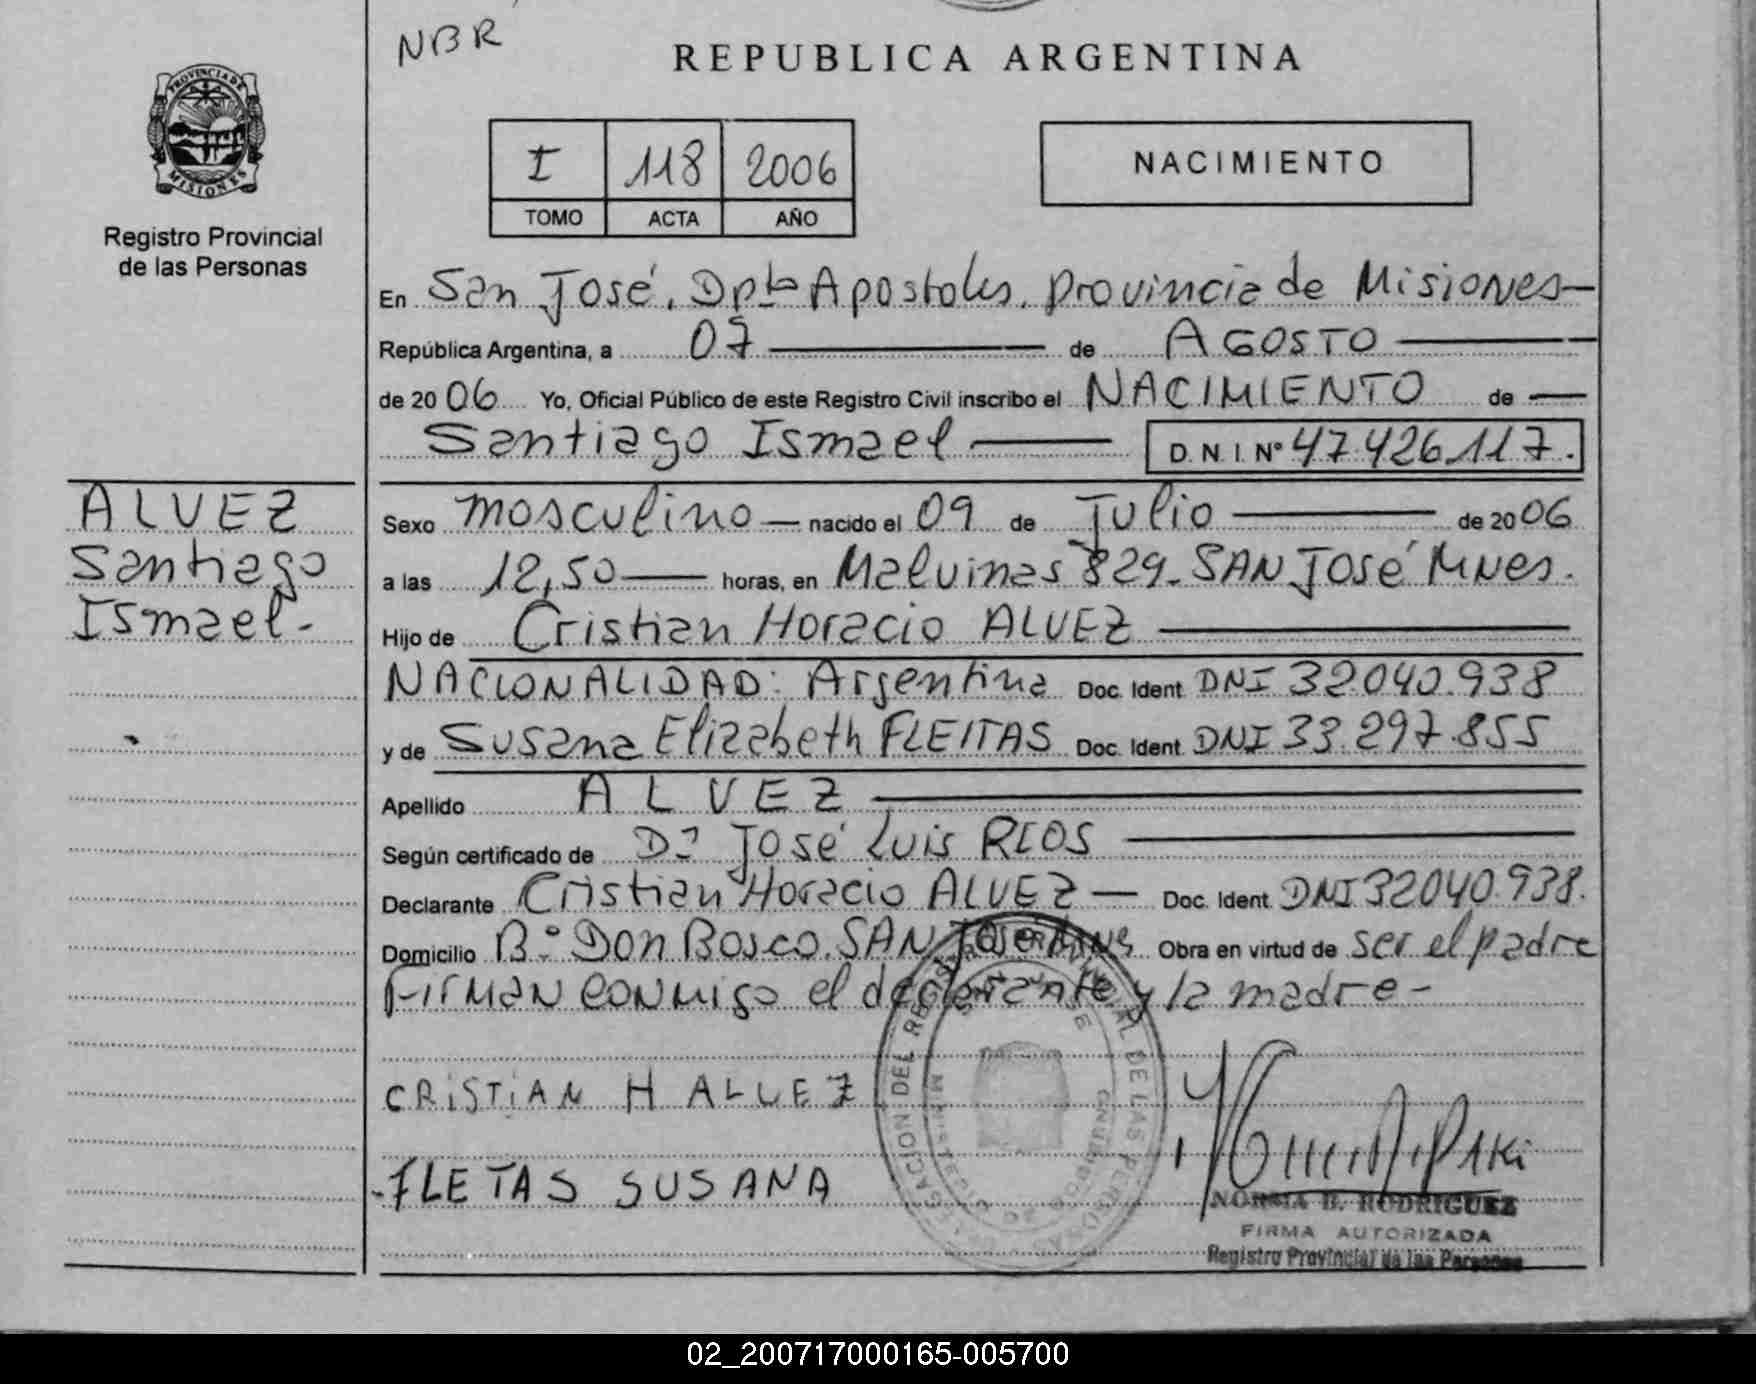 NBR
REPUBLICA ARGENTINA
PROVINCIA DE
MISIONES
Registro Provincial
de las Personas
I 118 2006
TOMO ACTA AÑO
NACIMIENTO
En San José, Dpto Apostoles, provincia de Misiones
República Argentina, a 07 de AGOSTO
de 2006 Yo, Oficial Público de este Registro Civil inscribo el NACIMIENTO de
Santiago Ismael D.N.I. Nº 47.426.117.
ALVEZ
Santiago
Ismael.-
Sexo mosculino nacido el 09 de Julio de 2006
a las 12,50 horas, en Malvinas 829- SAN José MNes.
Hijo de Cristian Horacio ALVEZ
NACIONALIDAD: Argentina Doc. Ident. DNI 32.040.938
y de Susana Elizabeth FLEITAS Doc. Ident. DNI 33.297.855
Apellido ALVEZ
Según certificado de Dr José Luis RIOS
Declarante Cristian Horacio ALVEZ Doc. Ident. DNI 32040.938.
Domicilio Bº Don Bosco, SAN José Obra en virtud de ser el padre
Firman conmigo el declarante y la madre-
CRiSTiAN H ALVEZ
FLETAS SUSANA
NORMA B. RODRIGUEZ
FIRMA AUTORIZADA
Registro Provincial de las Personas
02_200717000165-005700